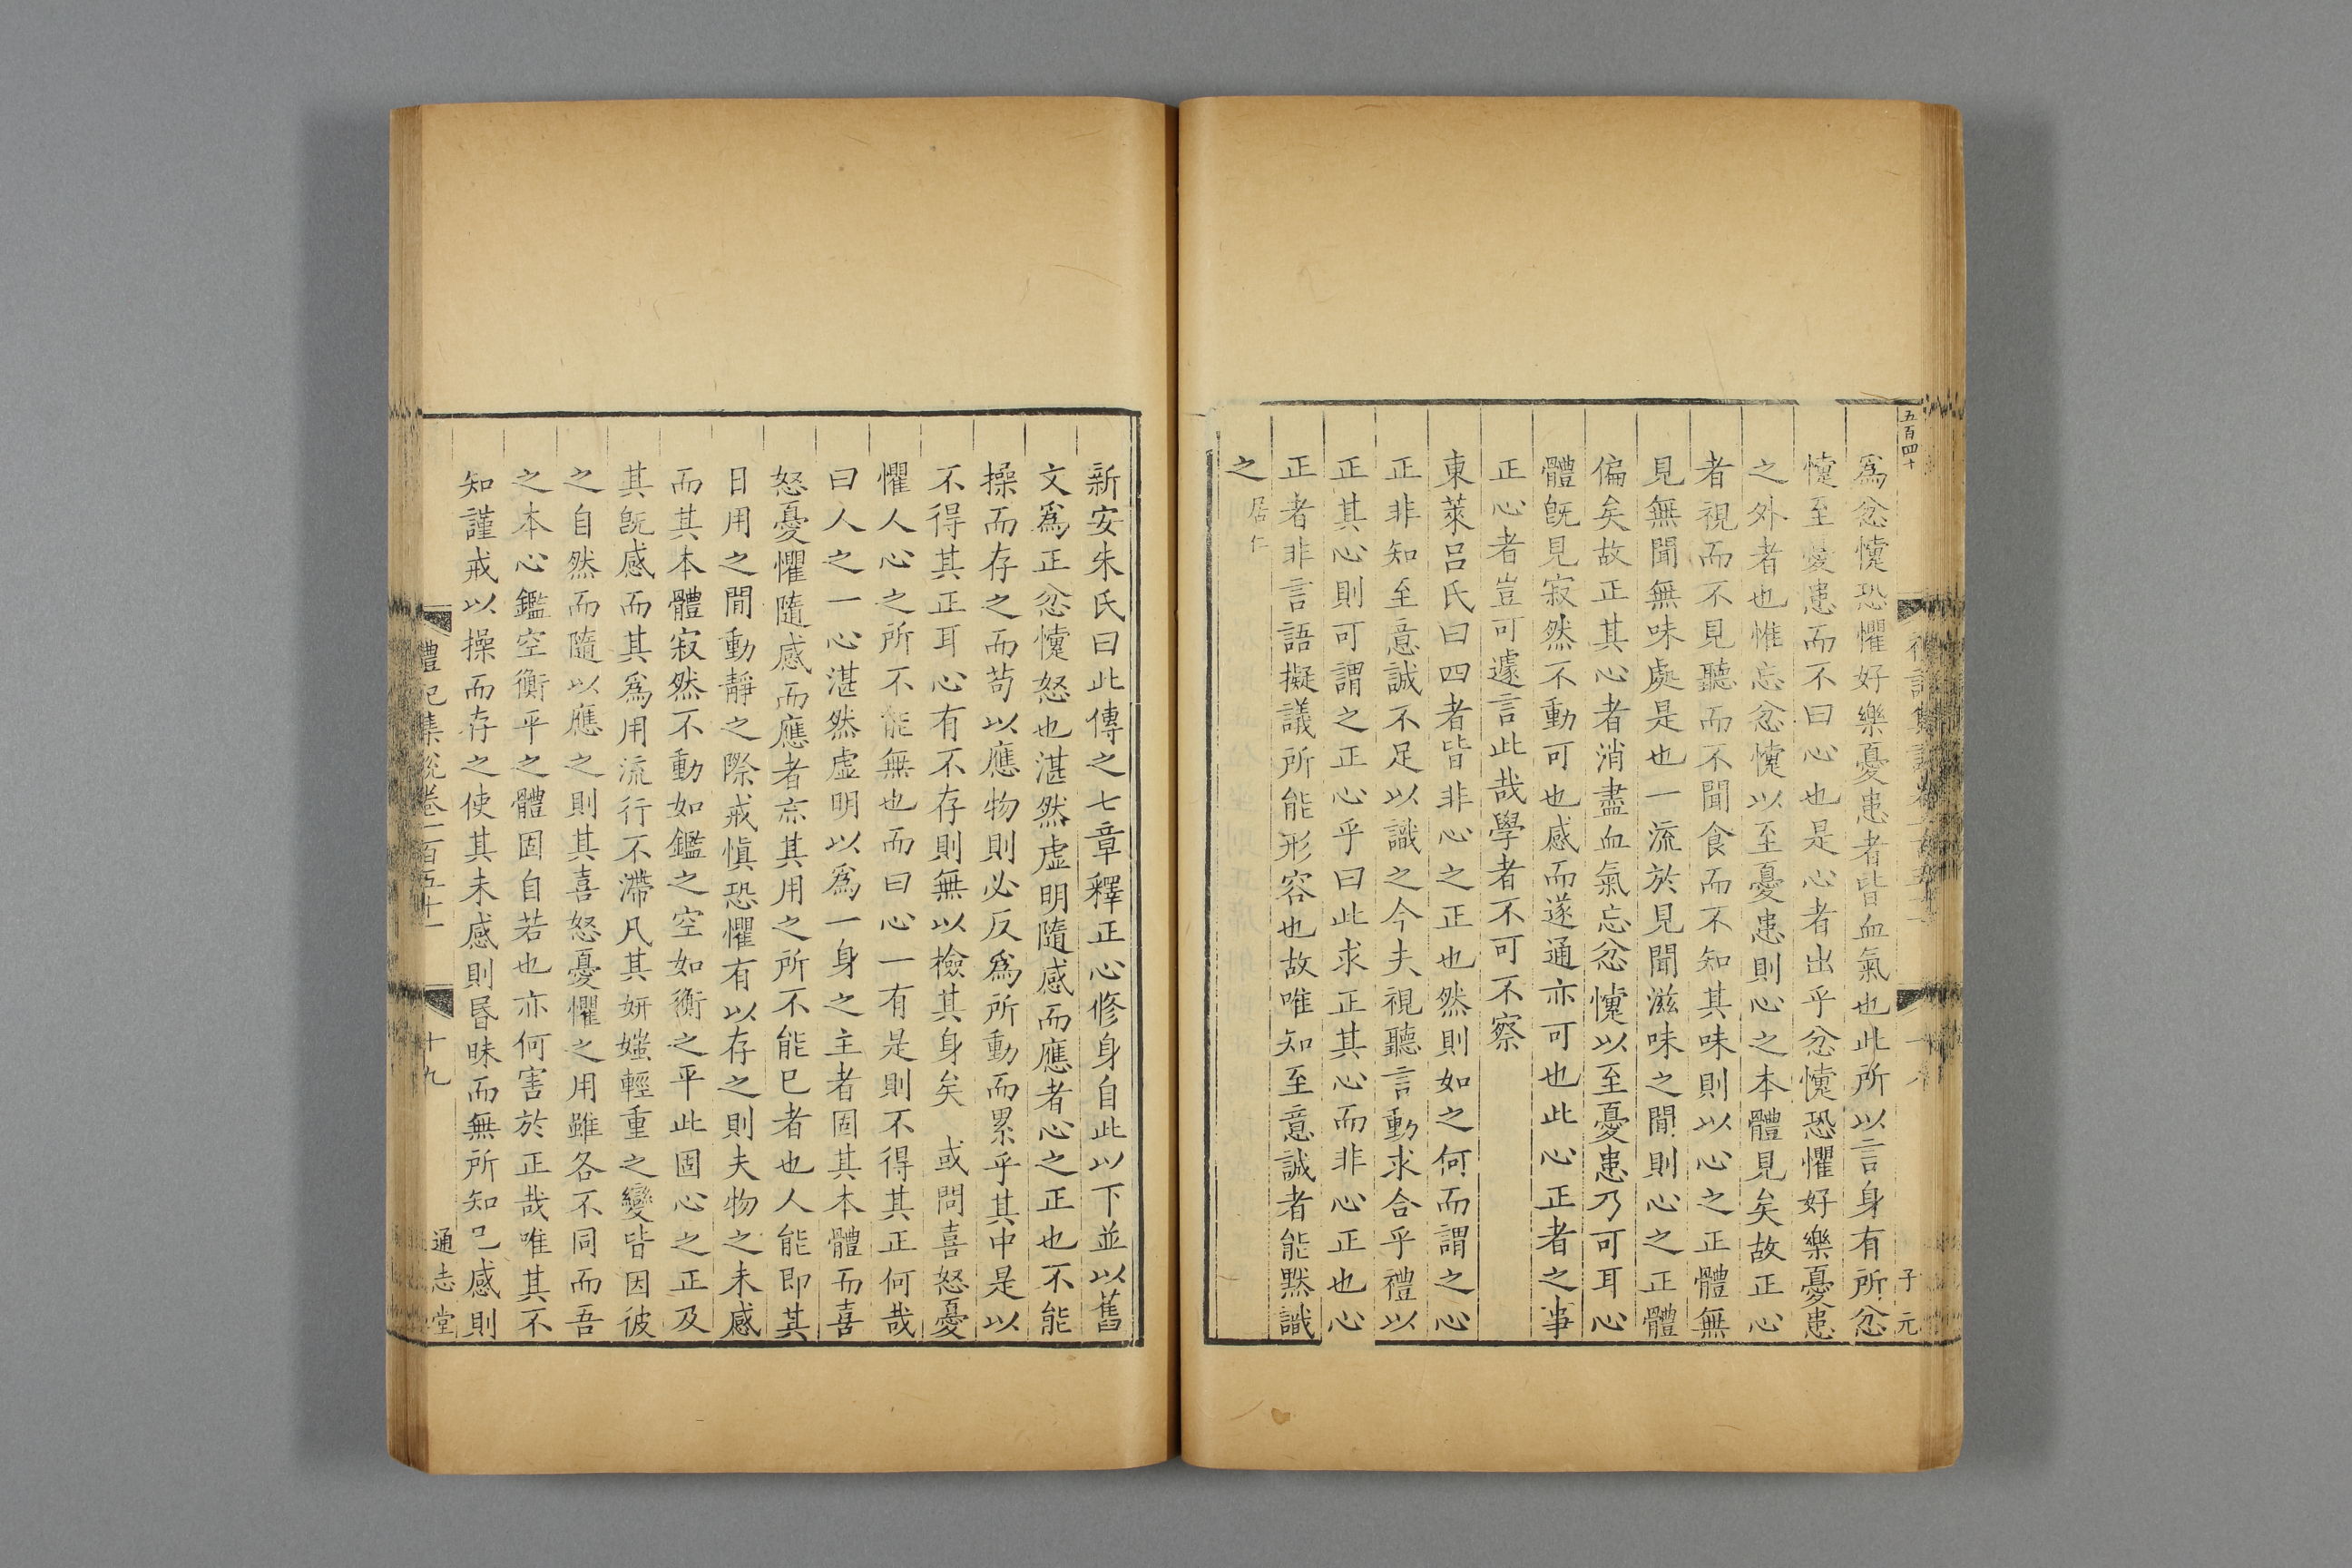 五百四十
子元
為忿懥恐懼好樂憂患者皆血氣也此所以言身有所忿
懥至憂患而不曰心也是心者出乎忿懥恐懼好樂憂患
之外者也惟忘忿懥以至憂患則心之本體見矣故正心
者視而不見聽而不聞食而不知其味則以心之正體無
見無聞無味處是也一流於見聞滋味之間則心之正體
偏矣故正其心者消盡血氣忘忿懥以至憂患乃可耳心
體旣見寂然不動可也感而遂通亦可也此心正者之事
正心者豈可遽言此哉學者不可不察
東萊呂氏曰四者皆非心之正也然則如之何而謂之心
正非知至意誠不足以識之今夫視聽言動求合乎禮以
正其心則可謂之正心乎曰此求正其心而非心正也心
正者非言語擬議所能形容也故唯知至意誠者能默識
之居仁
新安朱氏曰此傳之七章釋正心修身自此以下並以舊
文為正忿懥怒也湛然虛明隨感而應者心之正也不能
操而存之而苟以應物則必反為所動而累乎其中是以
不得其正耳心有不存則無以檢其身矣 或問喜怒憂
懼人心之所不能無也而曰心一有是則不得其正何哉
曰人之一心湛然虛明以為一身之主者固其本體而喜
怒憂懼隨感而應者亦其用之所不能已者也人能即其
日用之間動靜之際戒愼恐懼有以存之則夫物之未感
而其本體寂然不動如鑑之空如衡之平此固心之正及
其旣感而其為用流行不滯凡其妍媸輕重之變皆因彼
之自然而隨以應之則其喜怒憂懼之用雖各不同而吾
之本心鑑空衡平之體固自若也亦何害於正哉唯其不
知謹戒以操而存之使其未感則昏昧而無所知已感則
禮記集說卷一百五十一 十九 通志堂